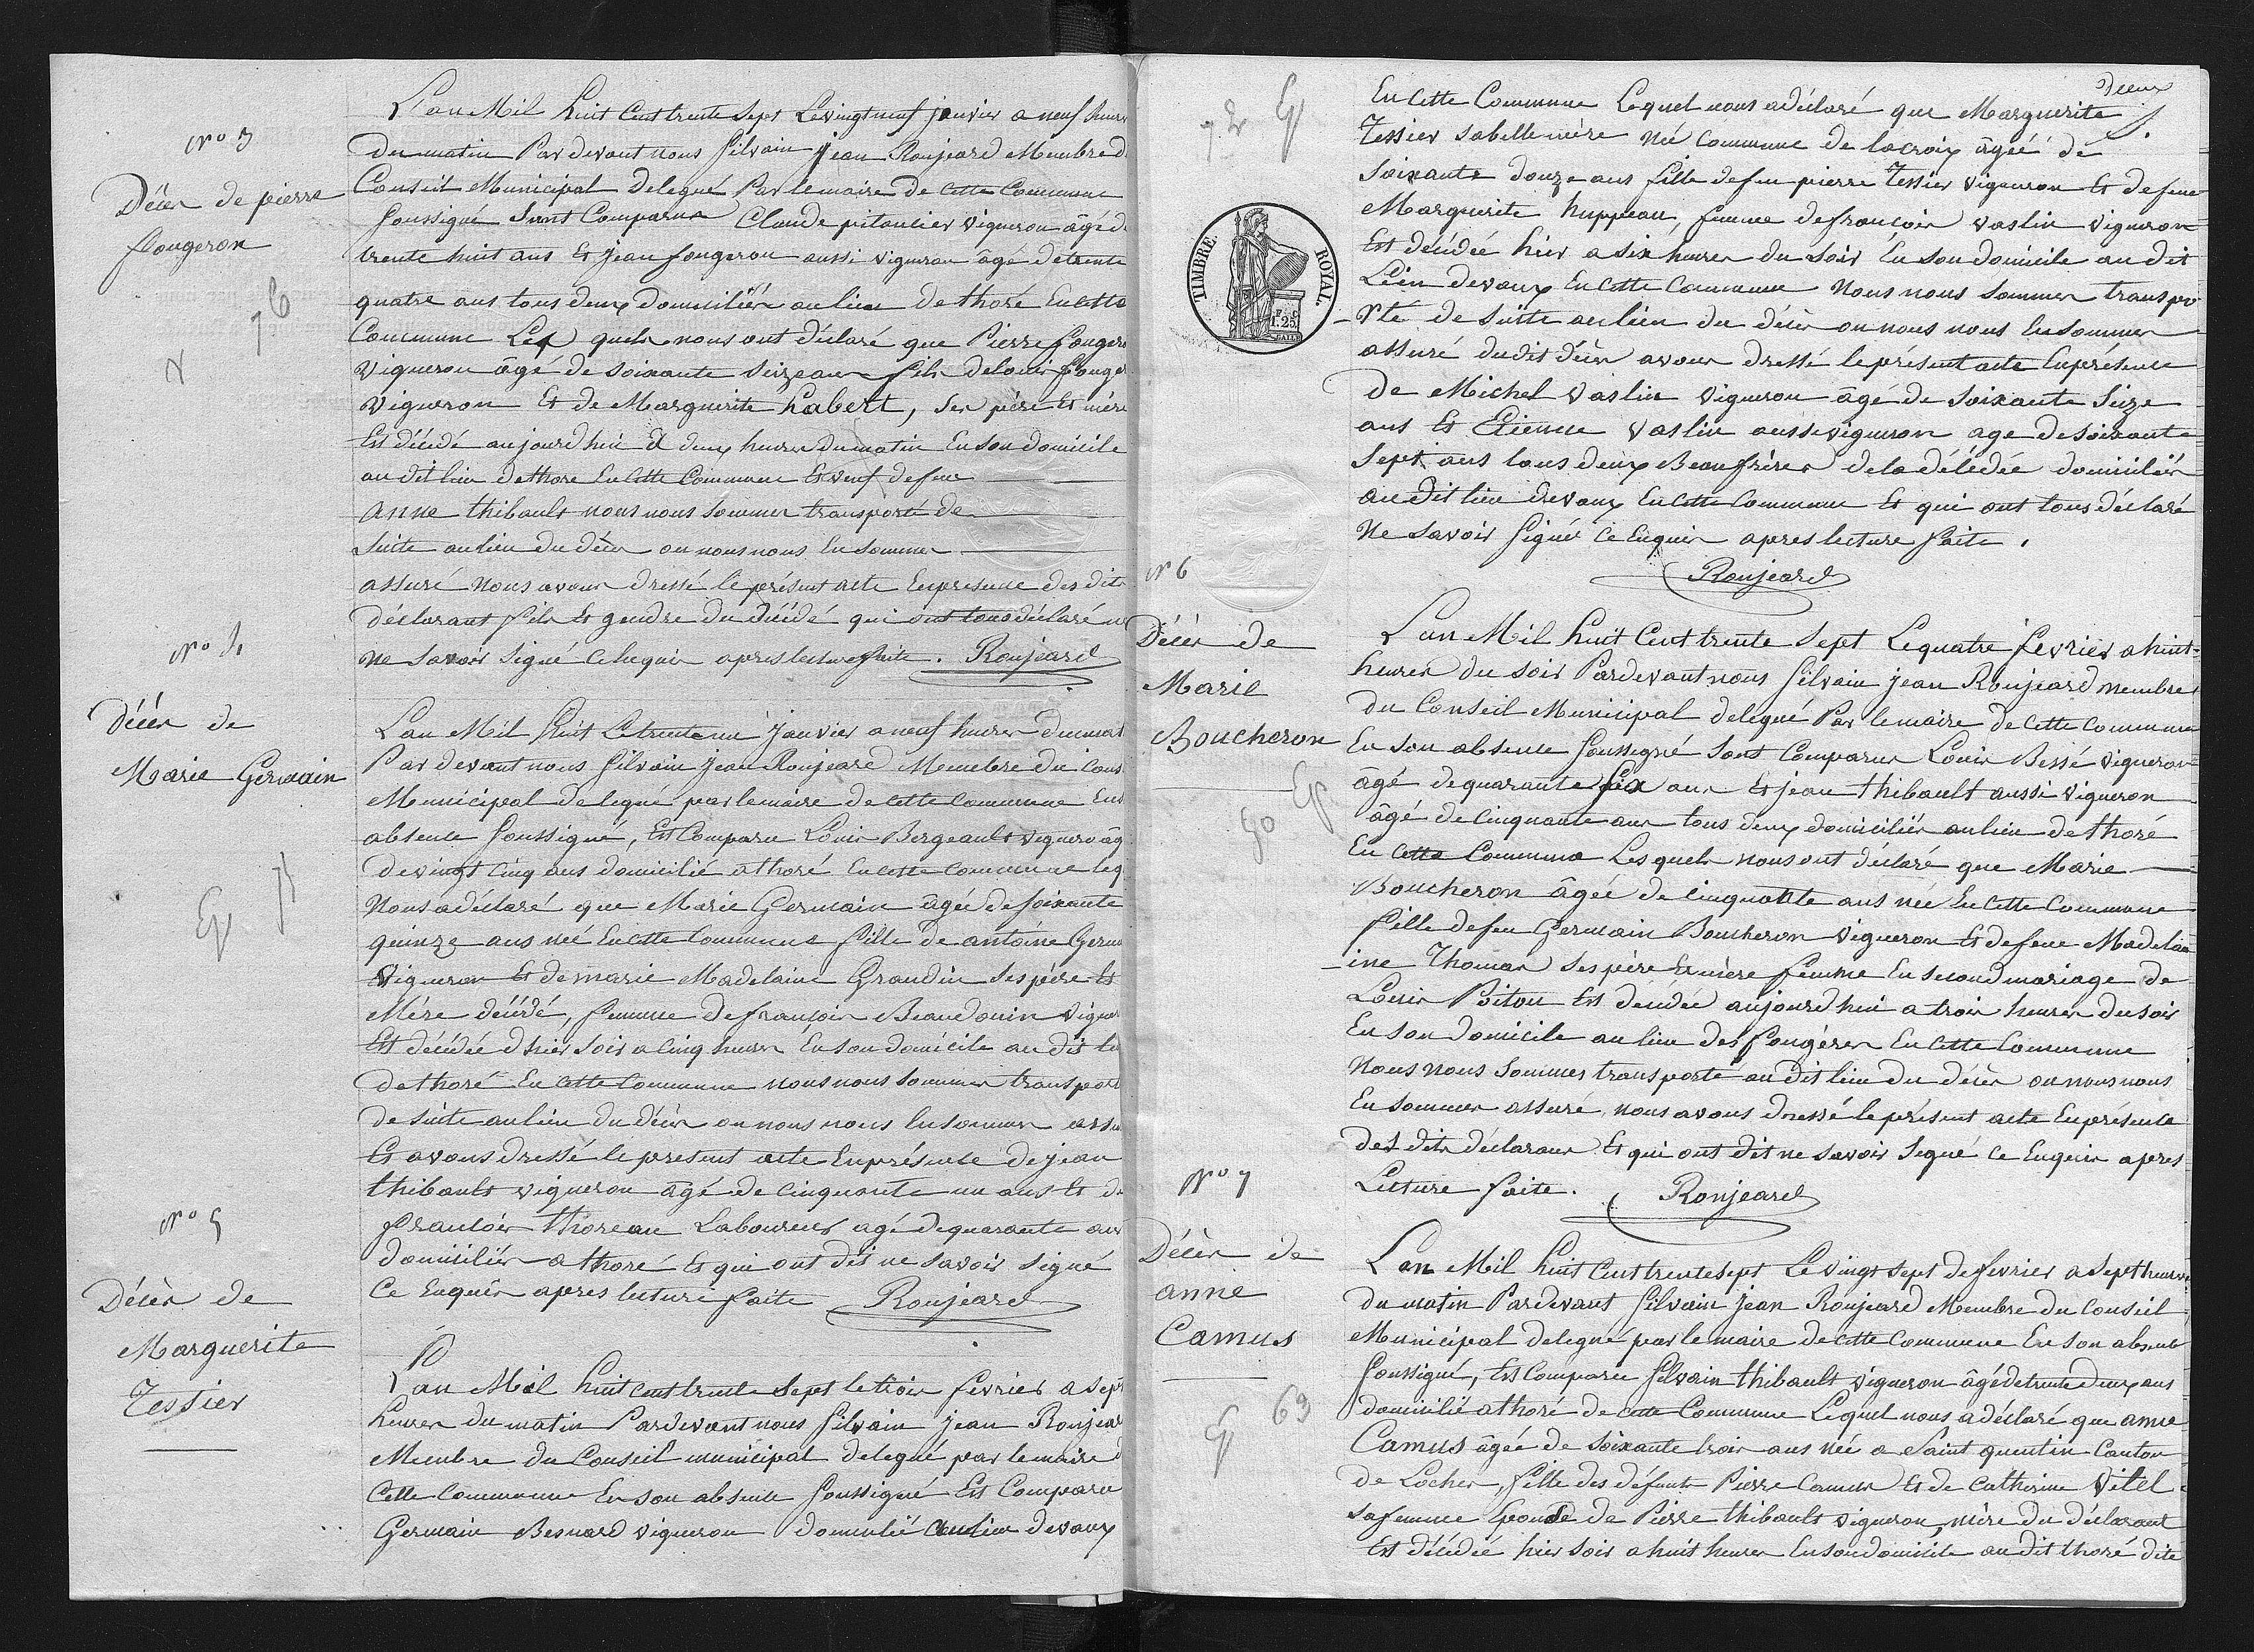 N° 3
Décès de pierre
fougeron
76
L'an Mil huit Cent trente Sept Le vingt neuf janvier a neuf heures
du matin Par devant nous Silvain jean Roujeard Membre d
Conseil Municipal delegué Par le maire de Cette Commune
Soussigné Sont Comparus Claude pitaulier vigneron âgé d
trente huit ans Et jean fougeron aussi vigneron âgé de trente
quatre ans tous deux domiciliés au lieu de thoré En cette
Commune Les quels nous ont déclaré que Pierre fougero
vigneron âgé de soixante Seize ans fils de louis fouge
vigneron Et de Marguerite habert, Ses père Et mère
Est décédé aujourd'hui a deux heures du matin En son domicile
au dit lieu de thoré En Cette Commune Et veuf de feue
Anne thibault nous nous Sommes transporté de
Suite au lieu du décès ou nous nous En Sommes
assuré Nous avons dressé le présent acte En presence des dits
déclarant fils Et gendre du décédé qui ont tous déclaré
ne savoir Signé Ce Enquis apres lecture faite. Roujeard
N° 4
Décès de
Marie Germain
75
L'an Mil huit C. trente un janvier a neuf heures du mat
Par devant nous Silvain jean Roujeard Membre du Cons
Municipal delegué par le maire de cette Commune En s
absence Soussigné, Est Comparu Louis Bergeault vignero âg
de vingt Cinq ans domicilié a thoré En cette Commune leq
Nous a déclaré que Marie Germain âgée de Soixante
quinze ans née En cette Commune fille de antoine Germa
Vigneron Et de marie Madelaine Grandin Ses père Et
Mére décédé, femme de françois Beaudouin Vigner
Est décédée d'hier soir a Cinq heures En son domicile au dit lie
de thoré En cette Commune nous nous sommes transport
de suite au lieu du décès ou nous nous En sommes assu
Et avons dressé le present acte En présence de jean
thibault vigneron âgé de Cinquante un ans Et de
françois thoreau Laboureur agé de quarante ans
domiciliés a thoré Et qui ont dit ne savoir signé
Ce Enquis apres lecture faite Roujeard
N° 5
Décès de
Marguerite
Tessier
L'an Mil huit cent trente Sept le trois fevrier a sept
heures du matin Par devant nous Silvain jean Roujear
Membre du Conseil municipal delegué par le maire d
Cette Commune En son absence Soussigné Est Comparu
Germain Besnard vigneron domicilié au lieu devaux
deux
72
En Cette Commune Lequel nous a déclaré que Marguerite
Tessier sa belle mère née Commune de lacroix âgée de
Soixante douze ans fille de feu pierre Tessier vigneron Et de feue
Marguerite huppeau, femme de françois vaslin vigneron
Est décédée hier a six heures du Soir En son domicile au dit
Lieu devaux En cette Commune Nous nous Sommes transpo
rté de Suite au lieu du décès ou nous nous En sommes
assuré du dit décès avons dressé le présent acte En présence
de Michel vaslin Vigneron âgé de Soixante Seize
ans Et Etienne vaslin aussi vigneron age de soixante
Sept ans tous deux Beaufrères de la décédée domiciliés
au dit lieu devaux En Cette Commune Et qui ont tous déclaré
Ne savoir Signé Ce Enquis apres lecture faite.
Roujeard
TIMBRE ROYAL.
1.25
N° 6
Décès de
Marie
Boucheron
50
L'an Mil huit Cent trente Sept Le quatre fevrier a huit
heures du soir Par devant nous Silvain jean Roujeard membre
du Conseil Municipal delegué Par le maire de Cette Commune
En son absence Soussigné Sont Comparus Louis Bessé Vigneron
âgé de quarante six ans Et jean thibault aussi vigneron
âgé de Cinquante ans tous deux domiciliés au lieu de thoré
En cette Commune Les quels nous ont déclaré que Marie
Boucheron âgée de Cinquante ans née En Cette Commune
fille de feu Germain Boucheron vigneron Et de feue Madela
ine Thomas Ses père Et mère femme En Second mariage de
Louis Poitou Est décédée aujourd'hui a trois heures du soir
En son domicile au lieu des fougères En cette Commune
Nous nous Sommes transporté au dit lieu du décès ou nous nous
En sommes assuré, nous avons dressé le présent acte En présence
des dits déclarans Et qui ont dit ne savoir Signé Ce Enquis apres
Lecture faite. Roujeard
N° 7
Décès de
anne
Camus
63
L'an Mil huit Cent trente sept Le vingt sept de fevrier a sept heures
du matin Par devant Silvain jean Roujeard Membre du Conseil
Municipal delegué par le maire de cette Commune En son absence
Soussigné, Est Comparu Silvain thibault vigneron âgé de trente deux ans
domicilié a thoré de cette Commune Lequel nous a déclaré que anne
Camus âgée de Soixante trois ans née a Saint quentin Canton
de Loches, fille des défunts Pierre Camus Et de Catherine Vitel
sa femme Epouse de Pierre thibault vigneron, mère du déclarant
Est décédée hier soir a huit heures En son domicile au dit thoré dite